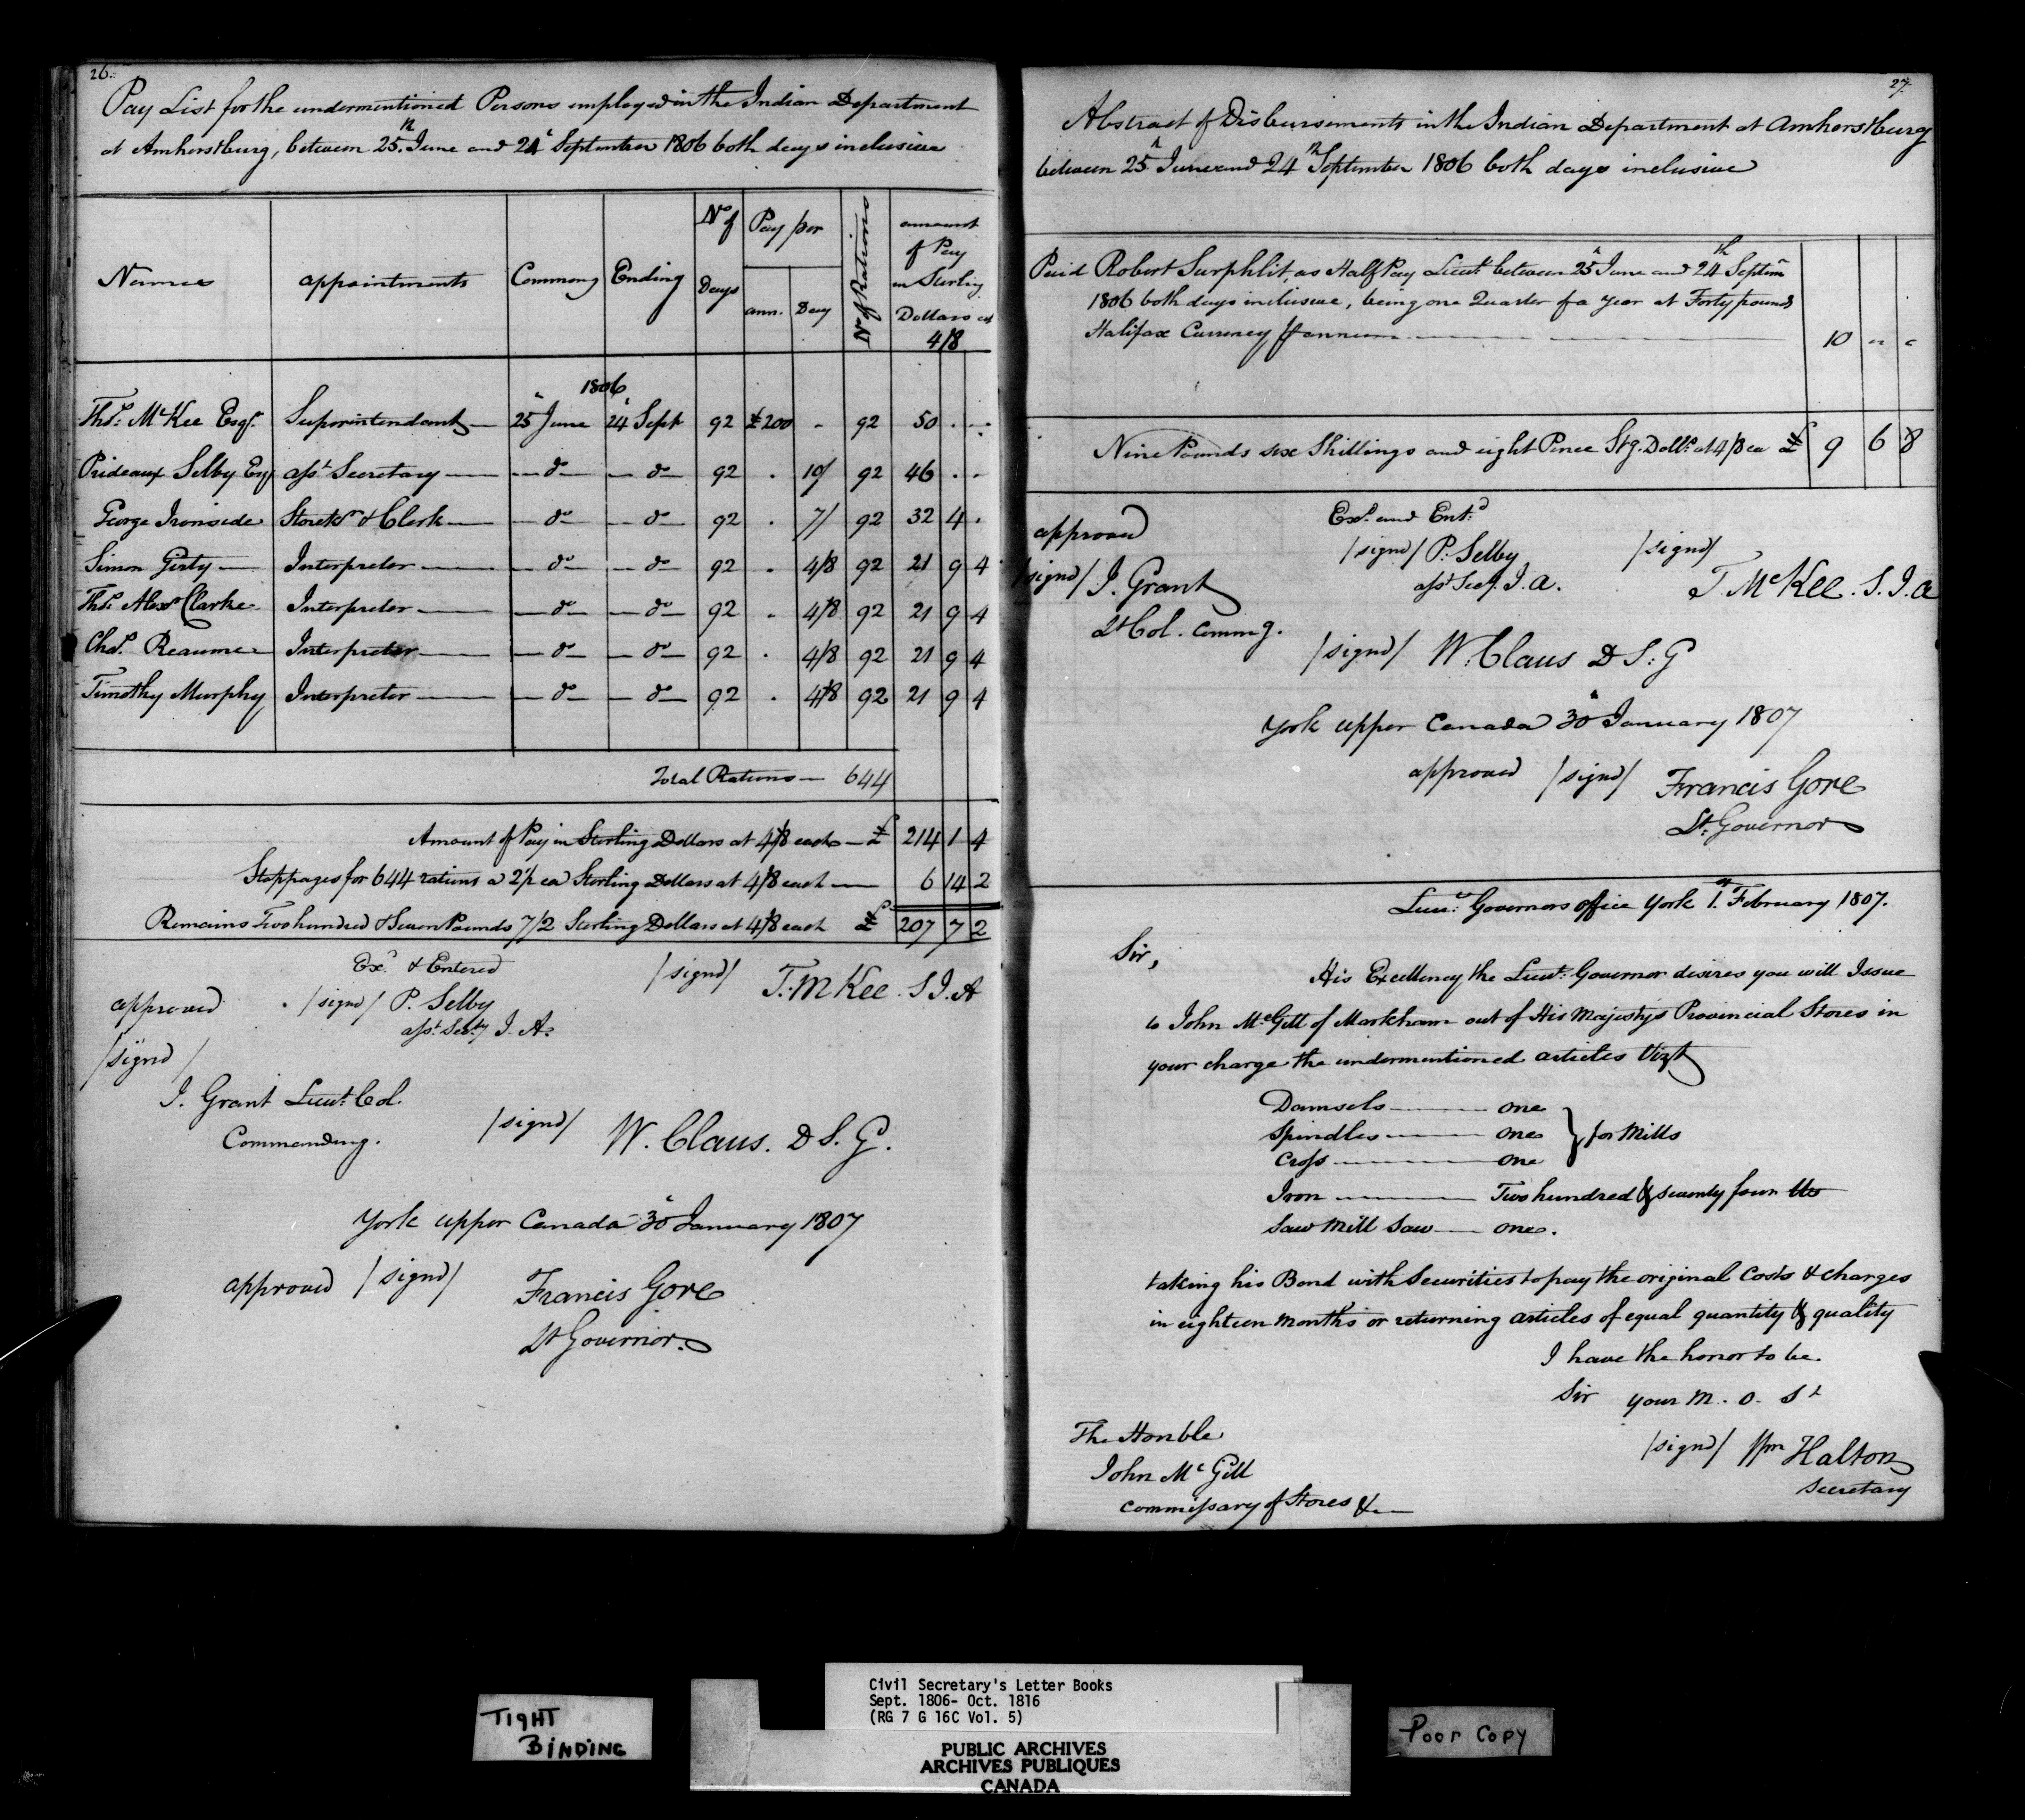 26.
Pay List for the undermentioned Persons employed in the Indian Department
at Amherstburg, between 25.th June and 24th September 1806 both days inclusive
Names appointments Commencg Ending No of Days Pay per ann. Day No of Rations amount of Pay in Sterling Dollars at 4/8
1806
Thos. McKee Esqr. Superintendant 25th June 24th Sept 92 £200 - 92 50 . .
Prideaux Selby Esq asst. Secretary do do 92 . 10/ 92 46 . .
George Ironside Storekr & Clerk do do 92 . 7/ 92 32 4 .
Simon Girty Interpreter do do 92 . 4/8 92 21 9 4
Thos. Alexr Clarke Interpreter do do 92 . 4/8 92 21 9 4
Chas. Reaume Interpreter do do 92 . 4/8 92 21 9 4
Timothy Murphy Interpreter do do 92 . 4/8 92 21 9 4
Total Rations — 644
Amount of Pay in Sterling Dollars at 4/8 each — £ 214 1 4
Stoppages for 644 rations a 2½ ea Sterling Dollars at 4/8 each — 6 14 2
Remains Two hundred & Seven Pounds 7/2 Sterling Dollars at 4/8 each £ 207 7 2
Exd. & Entered
/signd/ T. McKee. S I. A
approved /signd/ P. Selby
asst. Secty I. A.
/signd/
J. Grant Lieut. Col.
Commanding.
/signd/ W. Claus. D S. G.
York upper Canada 30th January 1807
approved /signd/ Francis Gore
Lt Governor.
27.
Abstract of Disbursements in the Indian Department at Amherstburg
between 25th June and 24th September 1806 both days inclusive
Paid Robert Surphlit, as Half Pay Lieut. between 25th June and 24th Septem
1806 both days inclusive, being one Quarter of a year at Forty pounds
Halifax Currency ⅌ annum — 10 " "
Nine Pounds six Shillings and eight Pence Stg. Dolls. at 4/8 ea £ 9 6 8
approved
Exd. and Entd.
/signd/ P. Selby
asst. Secy. I. A.
/signd/
T. McKee. S. I. A
/signd/ J. Grant
Lt Col. Commg.
/signd/ W. Claus D S. G
York upper Canada 30th January 1807
approved /signd/ Francis Gore
Lt. Governor
Lieut. Governors office York 1st. February 1807.
Sir,
His Excellency the Lieut. Governor desires you will Issue
to John McGill of Markham out of His Majestys Provincial Stores in
your charge the undermentioned articles Vizt
Damsels — one
Spindles — one } for Mills
Cross — one
Iron — Two hundred & seventy four lbs
Saw Mill Saw — one.
taking his Bond with Securities to pay the original Costs & charges
in eighteen months or returning articles of equal quantity & quality
I have the honor to be
Sir your M. O. St
/signd/ Wm Halton
Secretary
The Honble
John McGill
Commissary of Stores &c
TIGHT
BINDING
Civil Secretary's Letter Books
Sept. 1806- Oct. 1816
(RG 7 G 16C Vol. 5)
PUBLIC ARCHIVES
ARCHIVES PUBLIQUES
CANADA
Poor Copy